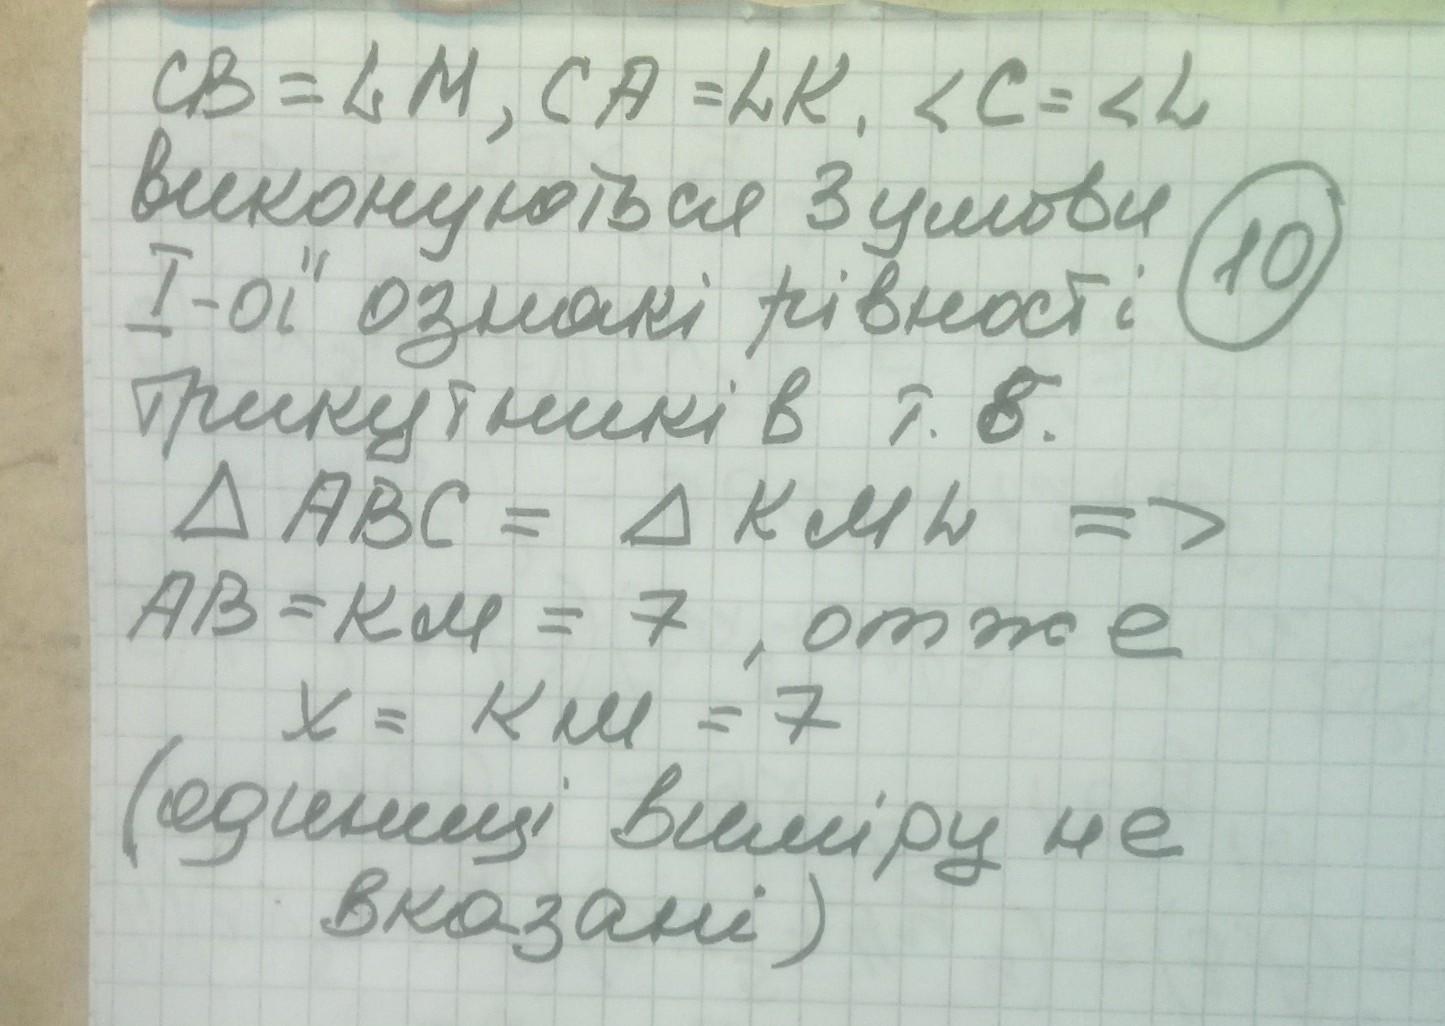 CB = LM, CA = LK, <C = <L
виконуються 3 умови
I-ої ознакі рівності
10
трикутників т. б.
△ ABC = △ KML =>
AB = KM = 7, отже
x = KM = 7
(одиниці виміру не
вказані)